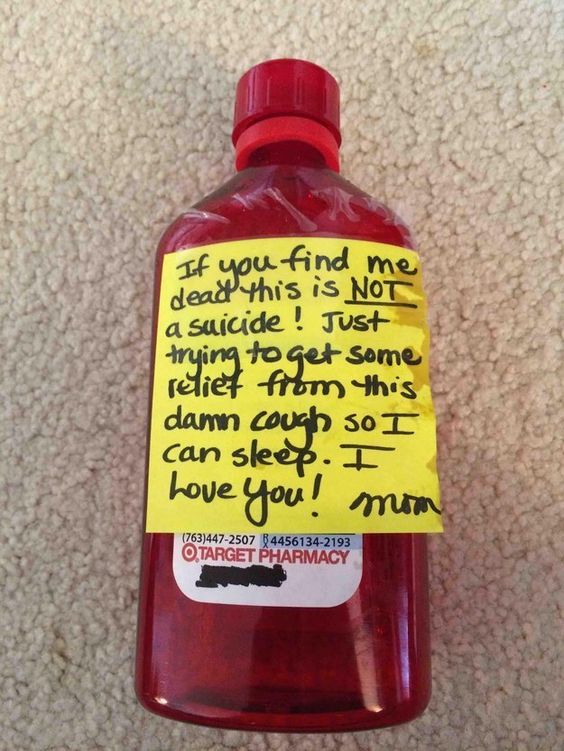 If you find me
dead this is NOT
a suicide! Just
trying to get some
relief from this
damn cough so I
can sleep. I
Love You! mom
(763)447-2507 Rx 4456134-2193
TARGET PHARMACY